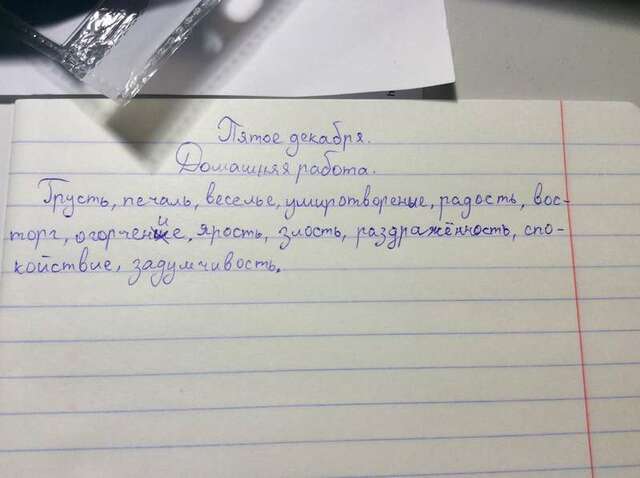 Пятое декабря.
Домашняя работа.
Грусть, печаль, веселье, умиротворенье, радость, вос-
торг, огорчение, ярость, злость, раздражённость, спо-
койствие, задумчивость.